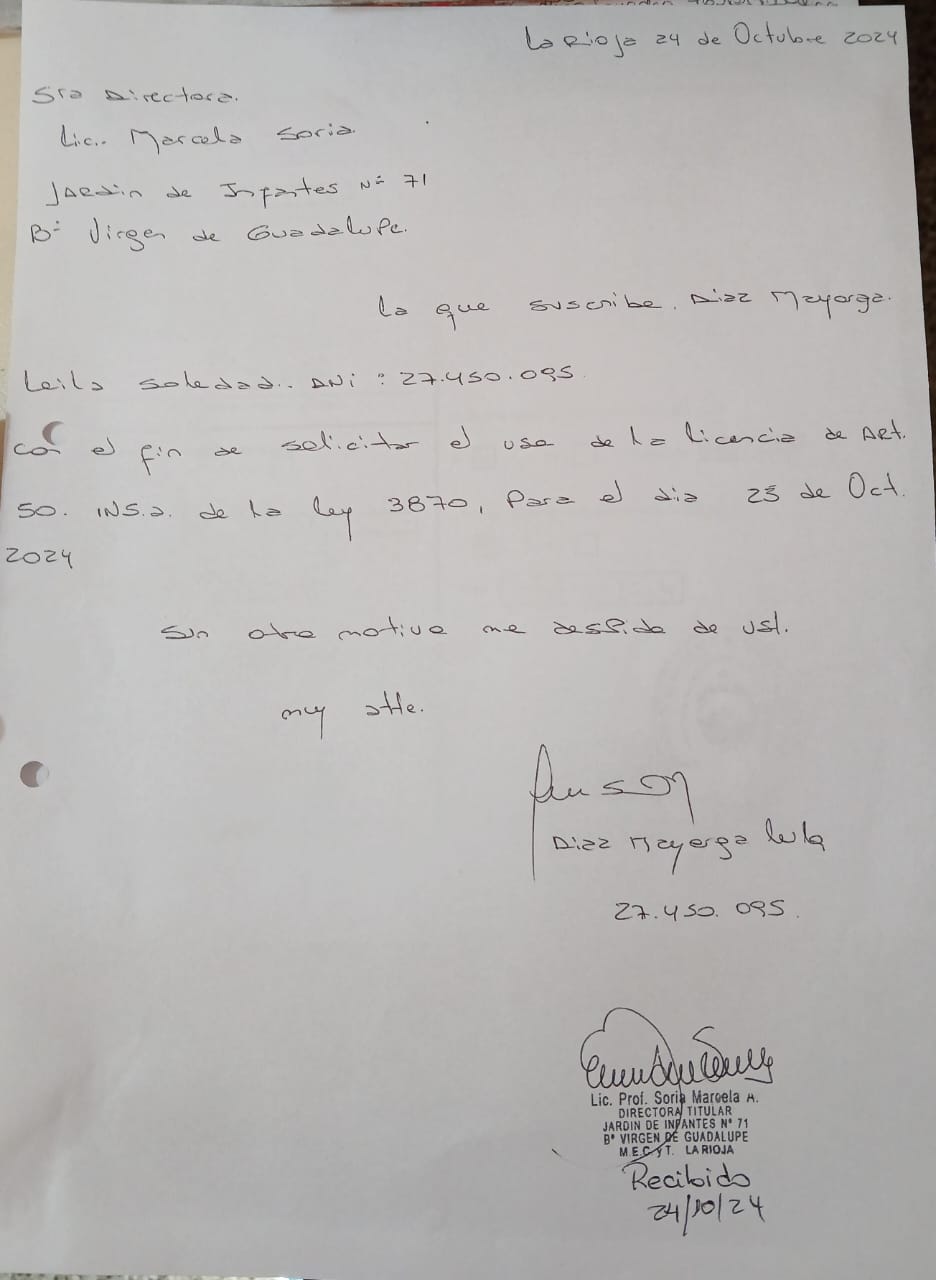 La Rioja 24 de Octubre 2024
Sra Directora.
Lic.. Marcela Soria
Jardin de Infantes Nº 71
Bº Virgen de Guadalupe.
La que suscribe, Diaz Mayorga.
Leila Soledad.. DNi : 27.450.095
con el fin de solicitar el uso de la licencia de ART.
50. INS.a. de la ley 3870, Para el dia 25 de Oct.
2024
Sin otro motivo me despido de Ust.
muy atte.
Diaz Mayorga Leila
27.450.095.
Lic. Prof. Soria Marcela A.
DIRECTORA TITULAR
JARDIN DE INFANTES Nº 71
Bº VIRGEN DE GUADALUPE
M.E.C y T. LA RIOJA
Recibido
24/10/24